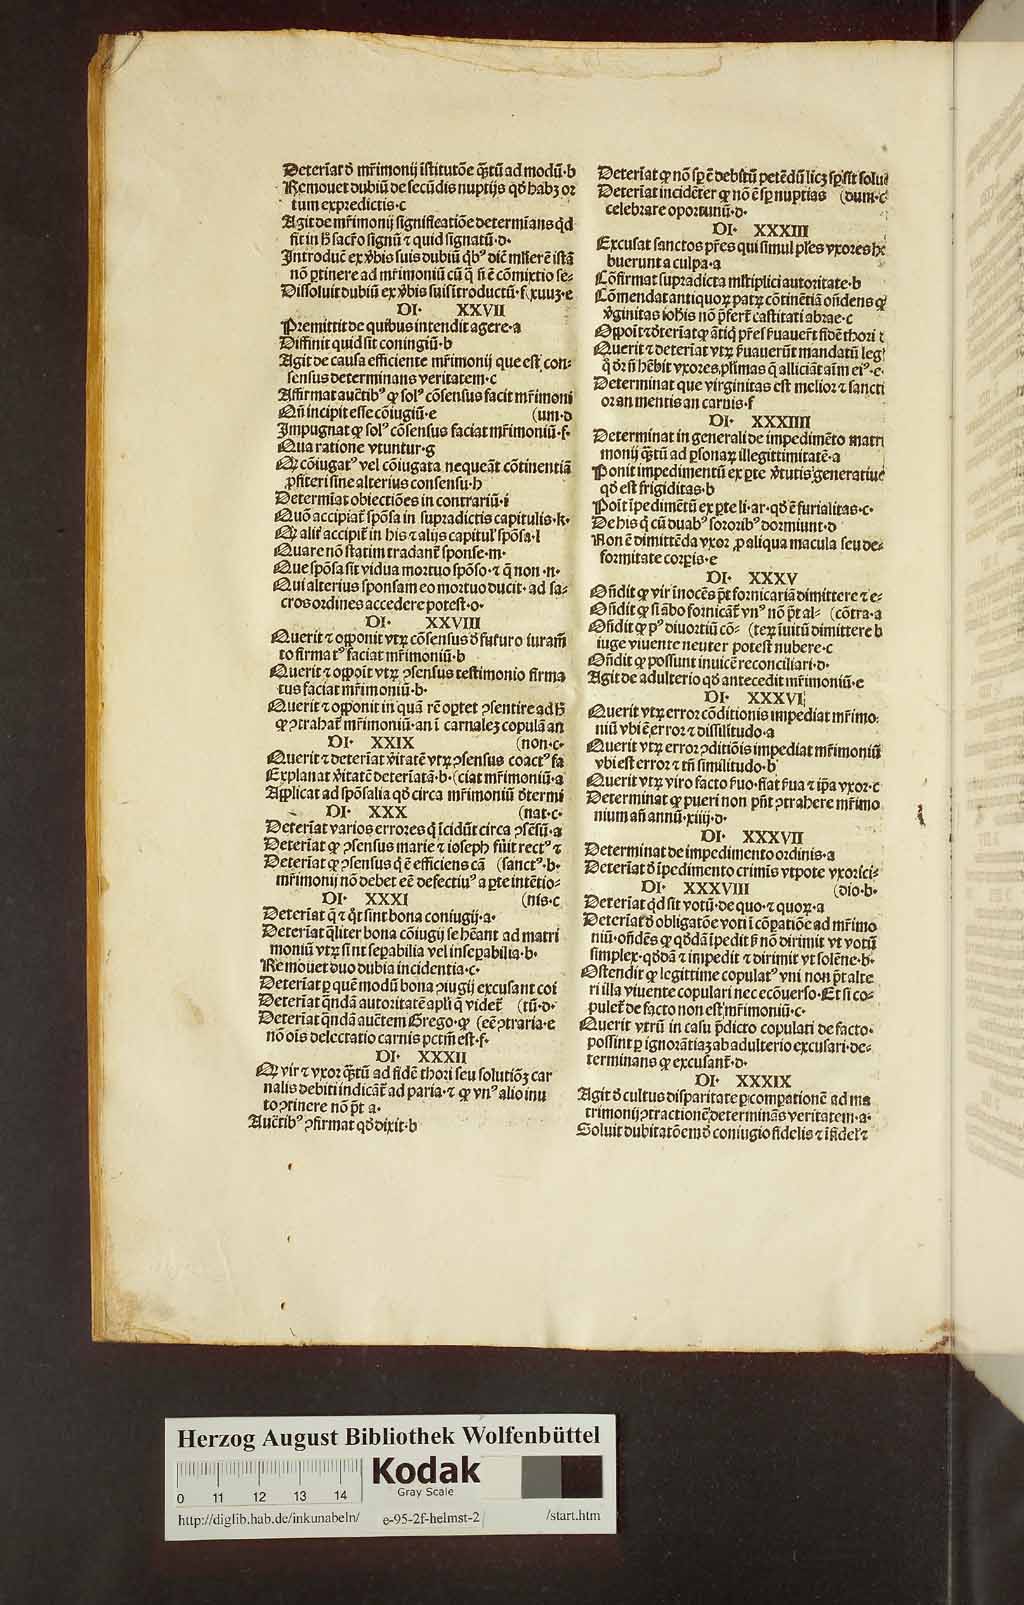 Deterīat ð mr̄imonij īstitutōe q̄stū ad modū·b
Remouet dubiū de secūdis nuptijs qð habꝫ or
tum ex predictis·c
Agit de mr̄imonij significatiōe determīans qd
fit in h̄ sacr̄o signū ⁊ quid signatū·d·
Introducē ex v̄bis suis dubiū qb⁹ dic̄
nō ꝑtinere ad mr̄imoniū cū q̄ n̄ ē cōmixtio se-
Dissoluit dubiū ex v̄bis suis ītroductū·f (xuuꝫ·e
DI· XXVII
Premittit de quibus intendit agere·a
Diffinit quid sit coniugiū·b
Agit de causa efficiente mr̄imonij que est con-
sensus determinans veritatem·c
Affirmat auc̄tib⁹ ꝙ sol⁹ cōsensus facit mr̄imoni
Qn̄ incipit esse cōiugiū·e (um·d
Impugnat ꝙ sol⁹ cōsensus faciat mr̄imoniū·f·
Qua ratione vtuntur·g
Qꝫ cōiugat⁹ vel cōiugata nequeāt cōtinentiā
ꝓfiteri sine alterius consensu·h
Determīat obiectiōes in contrariū·i
Quō accipiat̄ spōsa in supradictis capitulis·k·
Qꝫ alit̄ accipit̄ in his ⁊ alijs capitul' spōsa·l
Quare nō statim tradant̄ sponse·m·
Que spōsa sit vidua mortuo spōso·⁊ q̄ non·n·
Qui alterius sponsam eo mortuo ducit· ad sa-
cros ordines accedere potest·o·
DI· XXVIII
Querit ⁊ opponit vtꝝ cōsensus ð futuro iuram̄
to firmat⁹ faciat mr̄imoniū·b
Querit ⁊ oppoīt vtꝝ ↄsensus testimonio firma
tus faciat mr̄imoniū·b·
Querit ⁊ opponit in quā rē oꝑtet ↄsentire ad h̄
ꝙ ↄtrahat̄ mr̄imoniū·an ī carnaleꝫ copulā an
DI· XXIX (non·c·
Querit ⁊ deterīat v̄itatē vtꝝ ↄsensus coact⁹ fa
Explanat v̄itatē deterīatā·b·(ciat mr̄imoniū·a
Applicat ad spōsalia qð circa mr̄imoniū ðtermi
DI· XXX (nat·c·
Deterīat varios errores q̄ īcidūt circa ↄsēsū·a
Deterīat ꝙ ↄsensus marie ⁊ ioseph fuit rect⁹ ⁊
Deterīat ꝙ ↄsensus q̄ ē efficiens cā (sanct⁹·b·
mr̄imonij nō debet eē defectiu⁹ a ꝑte intētio-
DI· XXXI (nis·c
Deterīat q̄ ⁊ q̄t sint bona coniugij·a·
Deterīat q̄liter bona cōiugij se hēant ad matri
moniū vtꝝ sint seꝑabilia vel inseꝑabilia·b·
Remouet duo dubia incidentia·c·
Deterīat ꝑ quē modū bona ↄiugij excusant coi
Deterīat q̄ndā autoritatē apl'i q̄ videt̄ (tū·d·
Deterīat q̄ndā auc̄tem Grego·ꝙ (eē ↄtraria·e
nō ois delectatio carnis pctm̄ est·f·
DI· XXXII
Qꝫ vir ⁊ vxor q̄stū ad fidē thori seu solutiōꝫ car
nalis debiti indicāt̄ ad paria·⁊ ꝙ vn⁹ alio inui
to ↄtinere nō pt̄ a·
Auc̄tib⁹ ↄfirmat qð dixit·b
Deterīat ꝙ nō sꝑ ē debitū petēdū licꝫ sꝑ sit solu
Deterīat incidēter ꝙ nō ē sꝑ nuptias (dum·c
celebrare oportunū·d·
DI· XXXIII
Excusat sanctos pr̄es qui simul pl'es vxores hr̄
buerunt a culpa·a
Cōfirmat supradicta mltiplici autoritate·b
Cōmendat antiquoꝝ patꝝ cōtinētiā on̄dens ꝙ
v̄ginitas ioh̄is nō p̄fert̄ castitati abrae·c
Oppoīt ⁊ ðterīat ꝙ ātiq̄ pr̄es s̄uauer̄t fidē thori ⁊
Querit ⁊ deterīat vtꝝ s̄uauerūt mandatū leḡ
q̄ ðr n̄ hēbit vxores pl'imas q̄ alliciāt aīm ei⁹·e·
Determinat que virginitas est melior ⁊ sancti
or an mentis an carnis·f
DI· XXXIIII
Determinat in generali de impedimēto matri
monij q̄stū ad ꝑsonaꝝ illegittimitatē·a
Ponit impedimentū ex ꝑte v̄tutis generatiue
qð est frigiditas·b
Poīt īpedimētū ex ꝑte li·ar·qð ē furialitas·c·
De his q̄ cū duab⁹ sororib⁹ dormiunt·d
Non ē dimittēda vxor ꝓ aliqua macula seu de-
formitate corꝑis·e
DI· XXXV
On̄dit ꝙ vir īnocēs pt̄ fornicariā dimittere ⁊ e-
On̄dit ꝙ si ābo fornicāt̄ vn⁹ nō pt̄ al- (cōtra·a
On̄dit ꝙ p⁹ diuortiū cō- (teꝝ īuitū dimittere b
iuge viuente neuter potest nubere·c
On̄dit ꝙ possunt inuicē reconciliari·d·
Agit de adulterio qð antecedit mr̄imoniū·e
DI· XXXVI
Querit vtꝝ error cōditionis impediat mr̄imo-
niū vbi ē error ⁊ dissilitudo·a
Querit vtꝝ error ↄditiōis impediat mr̄imoniū
vbi est error ⁊ tn̄ similitudo·b
Querit vtꝝ viro facto s̄uo·fiat s̄ua ⁊ ip̄a vxor·c
Determinat ꝙ pueri non pn̄t ↄtrahere mr̄imo
nium an̄ annū·xiiij·d·
DI· XXXVII
Determinat de impedimento ordinis·a
Deterīat ð īpedimento crimīs vtpote vxorici-
DI· XXXVIII (dio·b·
Deterīat qd sit votū·de quo·⁊ quoꝝ·a
Deterīat ð obligatōe voti ī cōpatiōe ad mr̄imo
niū·on̄dēs ꝙ qðdā īpedit s̄ nō dirimit vt votū
simplex·qðdā ⁊ impedit ⁊ dirimit vt solēne·b·
Ostendit ꝙ legittime copulat⁹ vni non pt̄ alte
ri illa viuente copulari nec ecōuerso·Et si co-
pulet̄ de facto non est mr̄imoniū·c·
Querit vtrū in casu p̄dicto copulati de facto·
possint ꝑ ignorātiaꝫ ab adulterio excusari·de-
terminans ꝙ excusant̄·d·
DI· XXXIX
Agit ð cultus disparitate ꝑ compationē ad ma
trimonij ↄtractionē determinās veritatem·a·
Soluit dubitatōem ð coniugio fidelis ⁊ īfidel' ⁊
Herzog August Bibliothek Wolfenbüttel
Kodak
Gray Scale
0 11 12 13 14
http://diglib.hab.de/inkunabeln/ e-95-2f-helmst-2 /start.htm